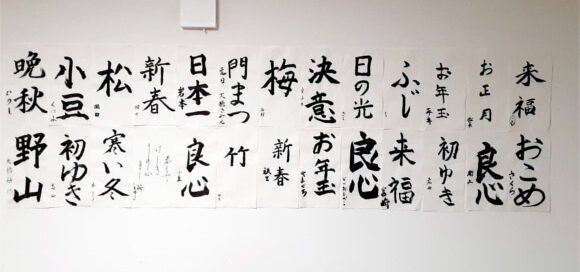 来福
お正月
お年玉
ふじ
日の光
決意
梅
門まつ
日本一
新春
松
小豆
晩秋
おこめ
さくら
良心
初ゆき
来福
良心
お年玉
新春
竹
良心
寒い冬
初ゆき
野山